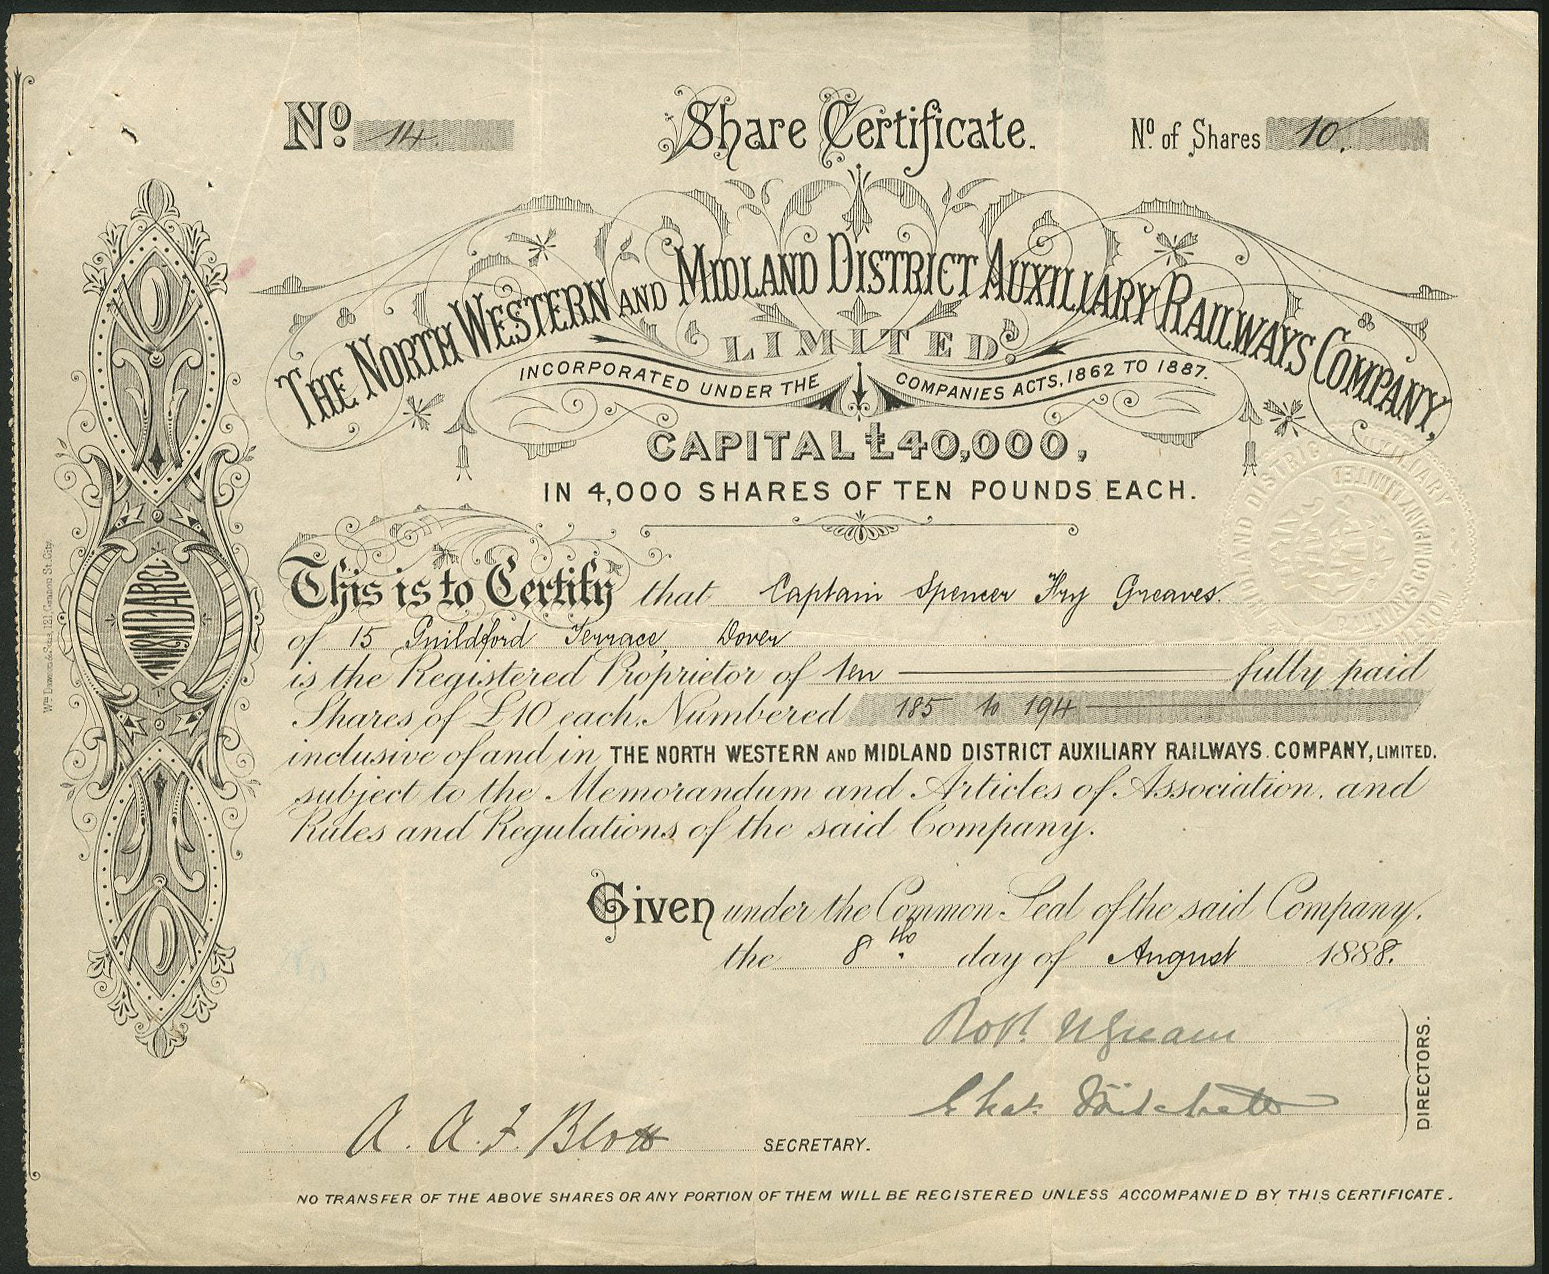 No 14. Share Certificate. No of Shares 10.
THE NORTH WESTERN AND MIDLAND DISTRICT AUXILIARY RAILWAYS COMPANY,
LIMITED.
INCORPORATED UNDER THE COMPANIES ACTS, 1862 TO 1887.
CAPITAL £40,000,
IN 4,000 SHARES OF TEN POUNDS EACH.
This is to Certify that Captain Spencer Hry Greaves
of 15 Guildford Terrace, Dover
is the Registered Proprietor of ten fully paid
Shares of £10 each, Numbered 185 to 194
inclusive of and in THE NORTH WESTERN AND MIDLAND DISTRICT AUXILIARY RAILWAYS COMPANY, LIMITED.
subject to the Memorandum and Articles of Association, and
Rules and Regulations of the said Company.
Given under the Common Seal of the said Company,
the 8th day of August 1888.
Robt
Chas
DIRECTORS.
A. A. F. Blott SECRETARY.
NO TRANSFER OF THE ABOVE SHARES OR ANY PORTION OF THEM WILL BE REGISTERED UNLESS ACCOMPANIED BY THIS CERTIFICATE.